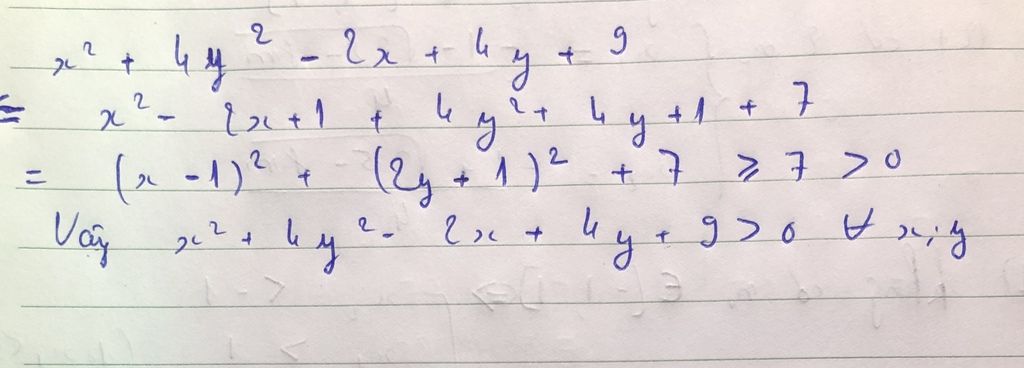 x² + 4y² - 2x + 4y + 9
= x² - 2x + 1 + 4y² + 4y + 1 + 7
= (x - 1)² + (2y + 1)² + 7 ⩾ 7 > 0
Vậy x² + 4y² - 2x + 4y + 9 > 0 ∀ x; y